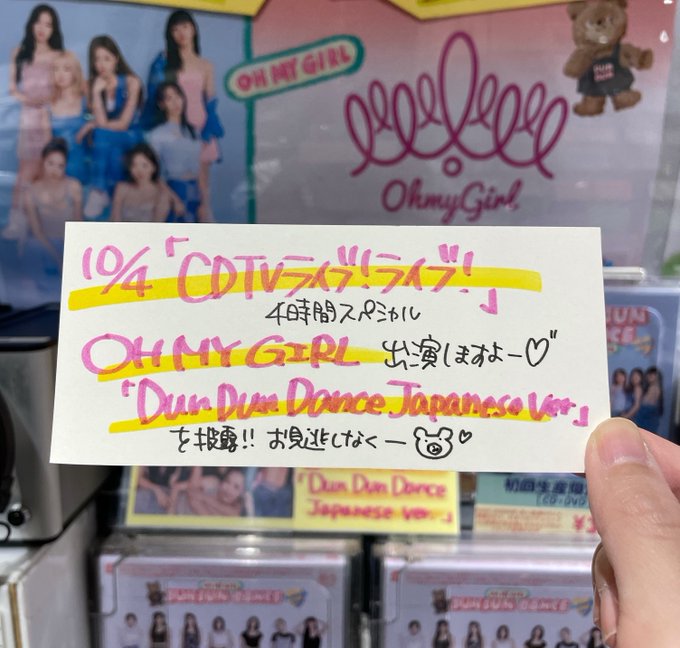 OH MY GIRL
OhmyGirl
10/4「CDTVライブ!ライブ!」
4時間スペシャル
OH MY GIRL 出演しますよー♡"
「Dun Dun Dance Japanese ver.」
を披露!! お見逃しなくー
「Dun Dun Dance
Japanese ver.」
初回生産限
DUN DUN DANCE
DUN DUN DANCE